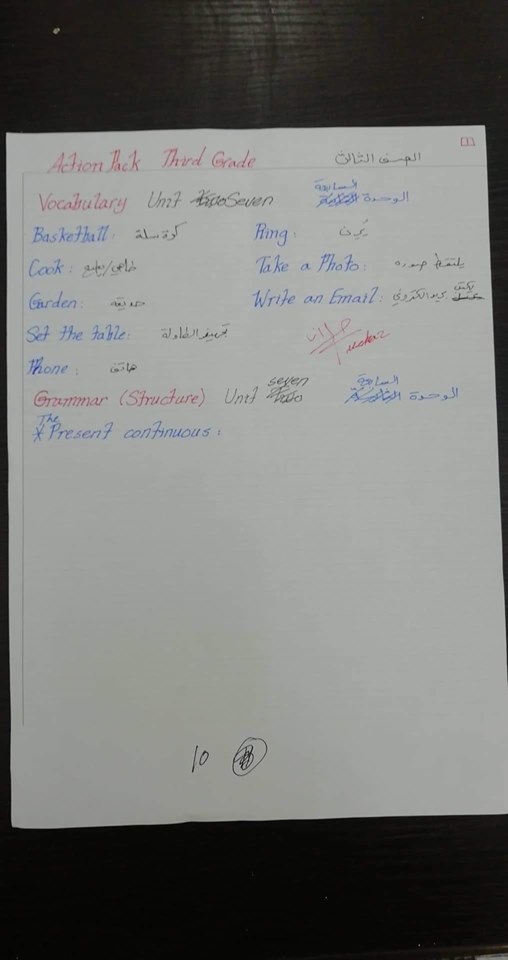 Action Pack Third Grade الصف الثالث
Vocabulary Unit Seven الوحدة السابعة
Basketball: كرة سلة Ring: يُرن
Cook: طاهي/يطبخ Take a Photo: يلتقط صوره
Garden: حديقة Write an Email: يكتب بريد الكتروني
Set the table: تجهيز الطاولة
Phone: هاتف
Grammar (Structure) Unit seven الوحدة السابعة
* The Present continuous:
10